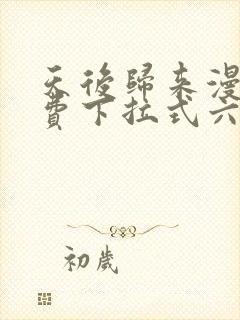 天後歸来漫
費下拉式六
初歲